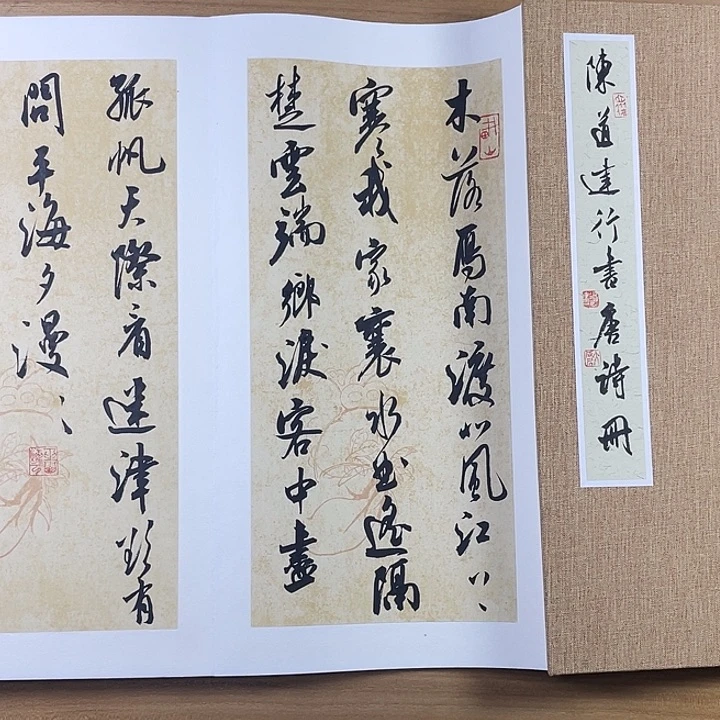 陳道達行書唐詩冊
木落鴈南渡北風江上
寒我家襄水曲遙隔
楚雲端鄉淚客中盡
孤帆天際看迷津欲有
問平海夕漫〻